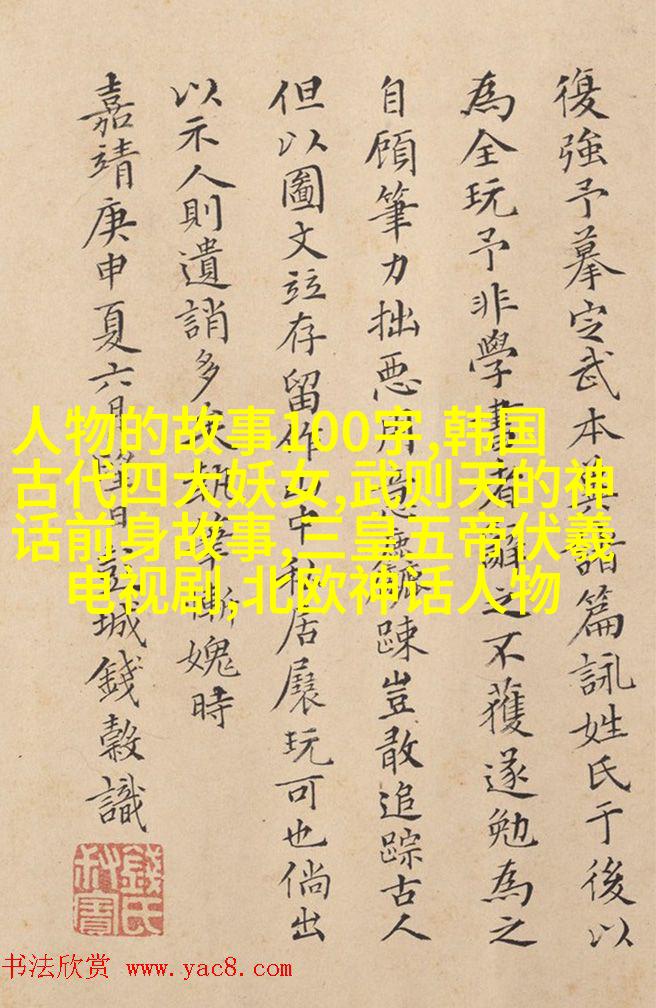 復強予摹定武本與諸篇詠姓氏于後以
為全玩予非學書者辭之不獲遂勉為之
自顧筆力拙惡用疎豈敢追踪古人
但以圖文竝存留作山中私居展玩可也倘出
以示人則遺誚多矣執筆慚媿時
嘉靖庚申夏六月日彭城錢穀識
錢氏叔寶
人物的故事100字,韩国
古代四大妖女,武则天的神
话前身故事,三皇五帝伏羲
电视剧,北欧神话人物
书法欣赏 www.yac8.com